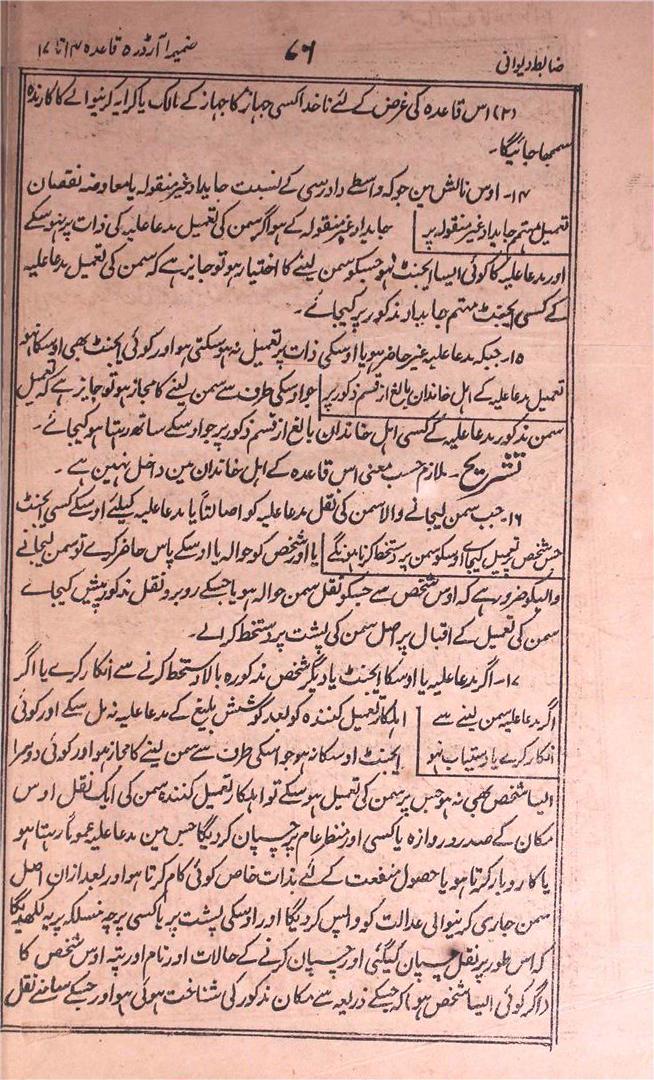 ضابطہ دیوانی
۷۶
ضمیمہ ا آرڈر ۵ قاعدہ ۱۴ تا ۱۷
(۲) اس قاعدہ کی غرض کے لئے ناخدا کسی جہاز کا جہاز کے مالک یا کرایہ کرنیوالے کا کارندہ
سمجھا جائیگا۔
۱۴۔ اوس نالش مین جو کہ واسطے دادرسی کے نسبت جایداد غیر منقولہ یا معاوضہ نقصان
تعمیل مہتمم جایداد غیر منقولہ پر
جایداد غیر منقولہ کے ہو اگر سمن کی تعمیل مدعا علیہ کی ذات پر نہوسکے
اور مدعا علیہ کا کوئی ایسا ایجنٹ نہو جسکو سمن لینے کا اختیار ہو تو جایز ہے کہ سمن کی تعمیل مدعا علیہ
کے کسی ایجنٹ مہتمم جایداد مذکور پر کیجائے۔
۱۵۔ جبکہ مدعا علیہ غیر حاضر ہو یا اوسکی ذات پر تعمیل نہ ہوسکتی ہو اور کوئی ایجنٹ بھی اوسکا نہو
تعمیل مدعا علیہ کے اہل خاندان بالغ از قسم ذکور پر
جو اوسکی طرف سے سمن لینے کا مجاز ہو تو جایز ہے کہ تعمیل
سمن مذکور مدعا علیہ کے کسی اہل خاندان بالغ از قسم ذکور پر جو اوسکے ساتھ رہتا ہو کیجائے۔
تشریح۔ ملازم حسب معنی اس قاعدہ کے اہل خاندان مین داخل نہین ہے۔
۱۶۔ جب سمن لیجانے والا سمن کی نقل مدعا علیہ کو اصالتاً یا مدعا علیہ کیلئے اوسکے کسی ایجنٹ
جس شخص پر تعمیل کیجاے اوسکو سمن پر دستخط کرنا ہونگے
یا اور شخص کو حوالہ یا اوسکے پاس حاضر کرے تو سمن لیجانے
والیکو ضرور ہے کہ اوس شخص سے جسکو نقل سمن حوالہ ہو یا جسکے روبرو نقل مذکور پیش کیجاے
سمن کی تعمیل کے اقبال پر اصل سمن کی پشت پر دستخط کرالے۔
۱۷۔ اگر مدعا علیہ یا اوسکا ایجنٹ یا دیگر شخص مذکورہ بالا دستخط کرنے سے انکار کرے یا اگر
اگر مدعا علیہ سمن لینے سے
اہلکار تعمیل کنندہ کو بعد کوشش بلیغ کے مدعا علیہ نہ مل سکے اور کوئی
انکار کرے یا دستیاب نہو
ایجنٹ اوسکا نہو جو اسکی طرف سے سمن لینے کا مجاز ہو اور کوئی دوسرا
ایسا شخص بھی نہ ہو جس پر سمن کی تعمیل ہوسکے تو اہلکار تعمیل کنندہ سمن کی ایک نقل اوس
مکان کے صدر دروازہ یا کسی اور منظر عام پر چسپان کردیگا جس مین مدعا علیہ عموماً رہتا ہو
یا کاروبار کرتا ہو یا حصول منفعت کے لئے بذات خاص کوئی کام کرتا ہو اور بعد ازان اصل
سمن جاری کرنیوالی عدالت کو واپس کردیگا اور اوسکی پشت پر یا کسی پرچہ منسلکہ پر یہ لکھدیگا
کہ اس طور پر نقل چسپان کیگئی اور چسپان کرنے کے حالات اور نام اور پتہ اوس شخص کا
(اگر کوئی ایسا شخص ہو) کہ جسکے ذریعہ سے مکان مذکور کی شناخت ہوئی ہو اور جسکے سامنے نقل